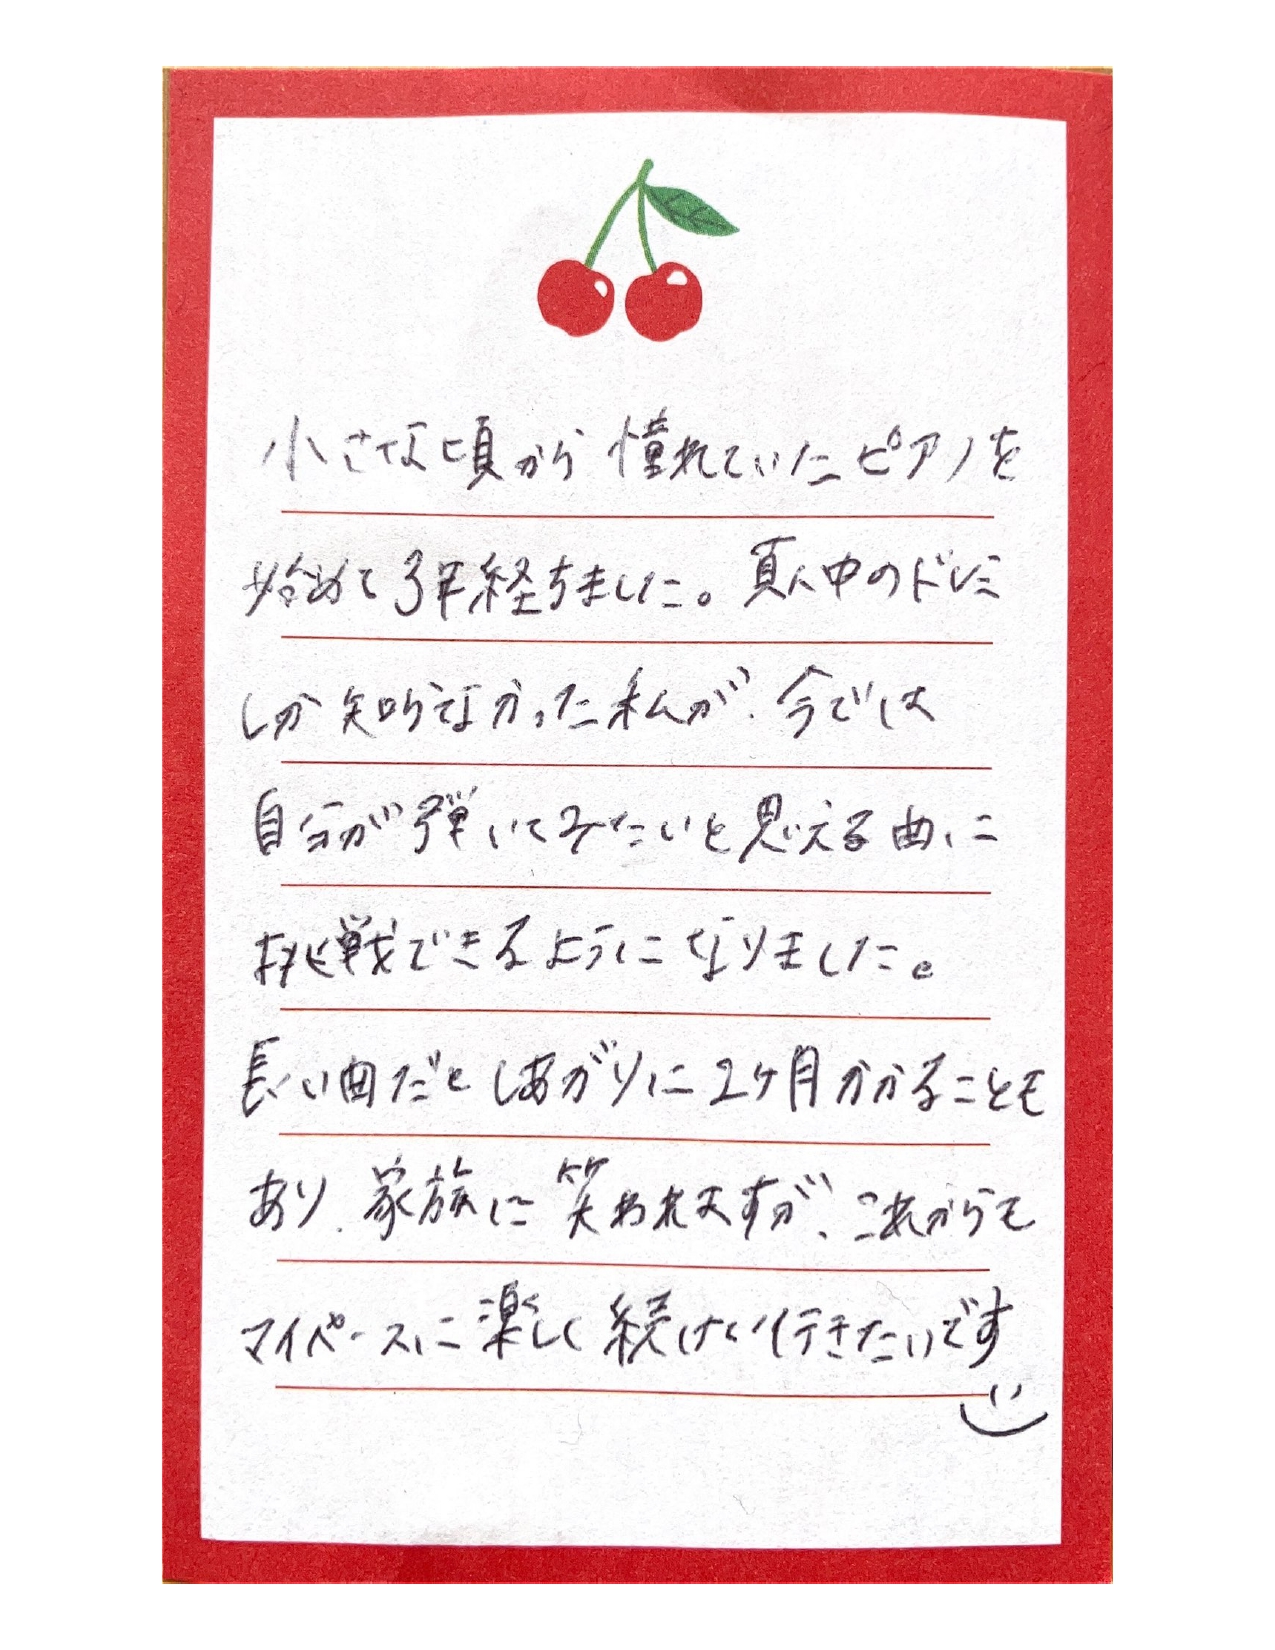 小さな頃から憧れていたピアノを
始めて3年経ちました。真ん中のドレミ
しか知らなかった私が、今では
自分が弾いてみたいと思える曲に
挑戦できるようになりました。
長い曲だとしあがりに2ケ月かかることも
あり、家族に笑われますが、これからも
マイペースに楽しく続けて行きたいです